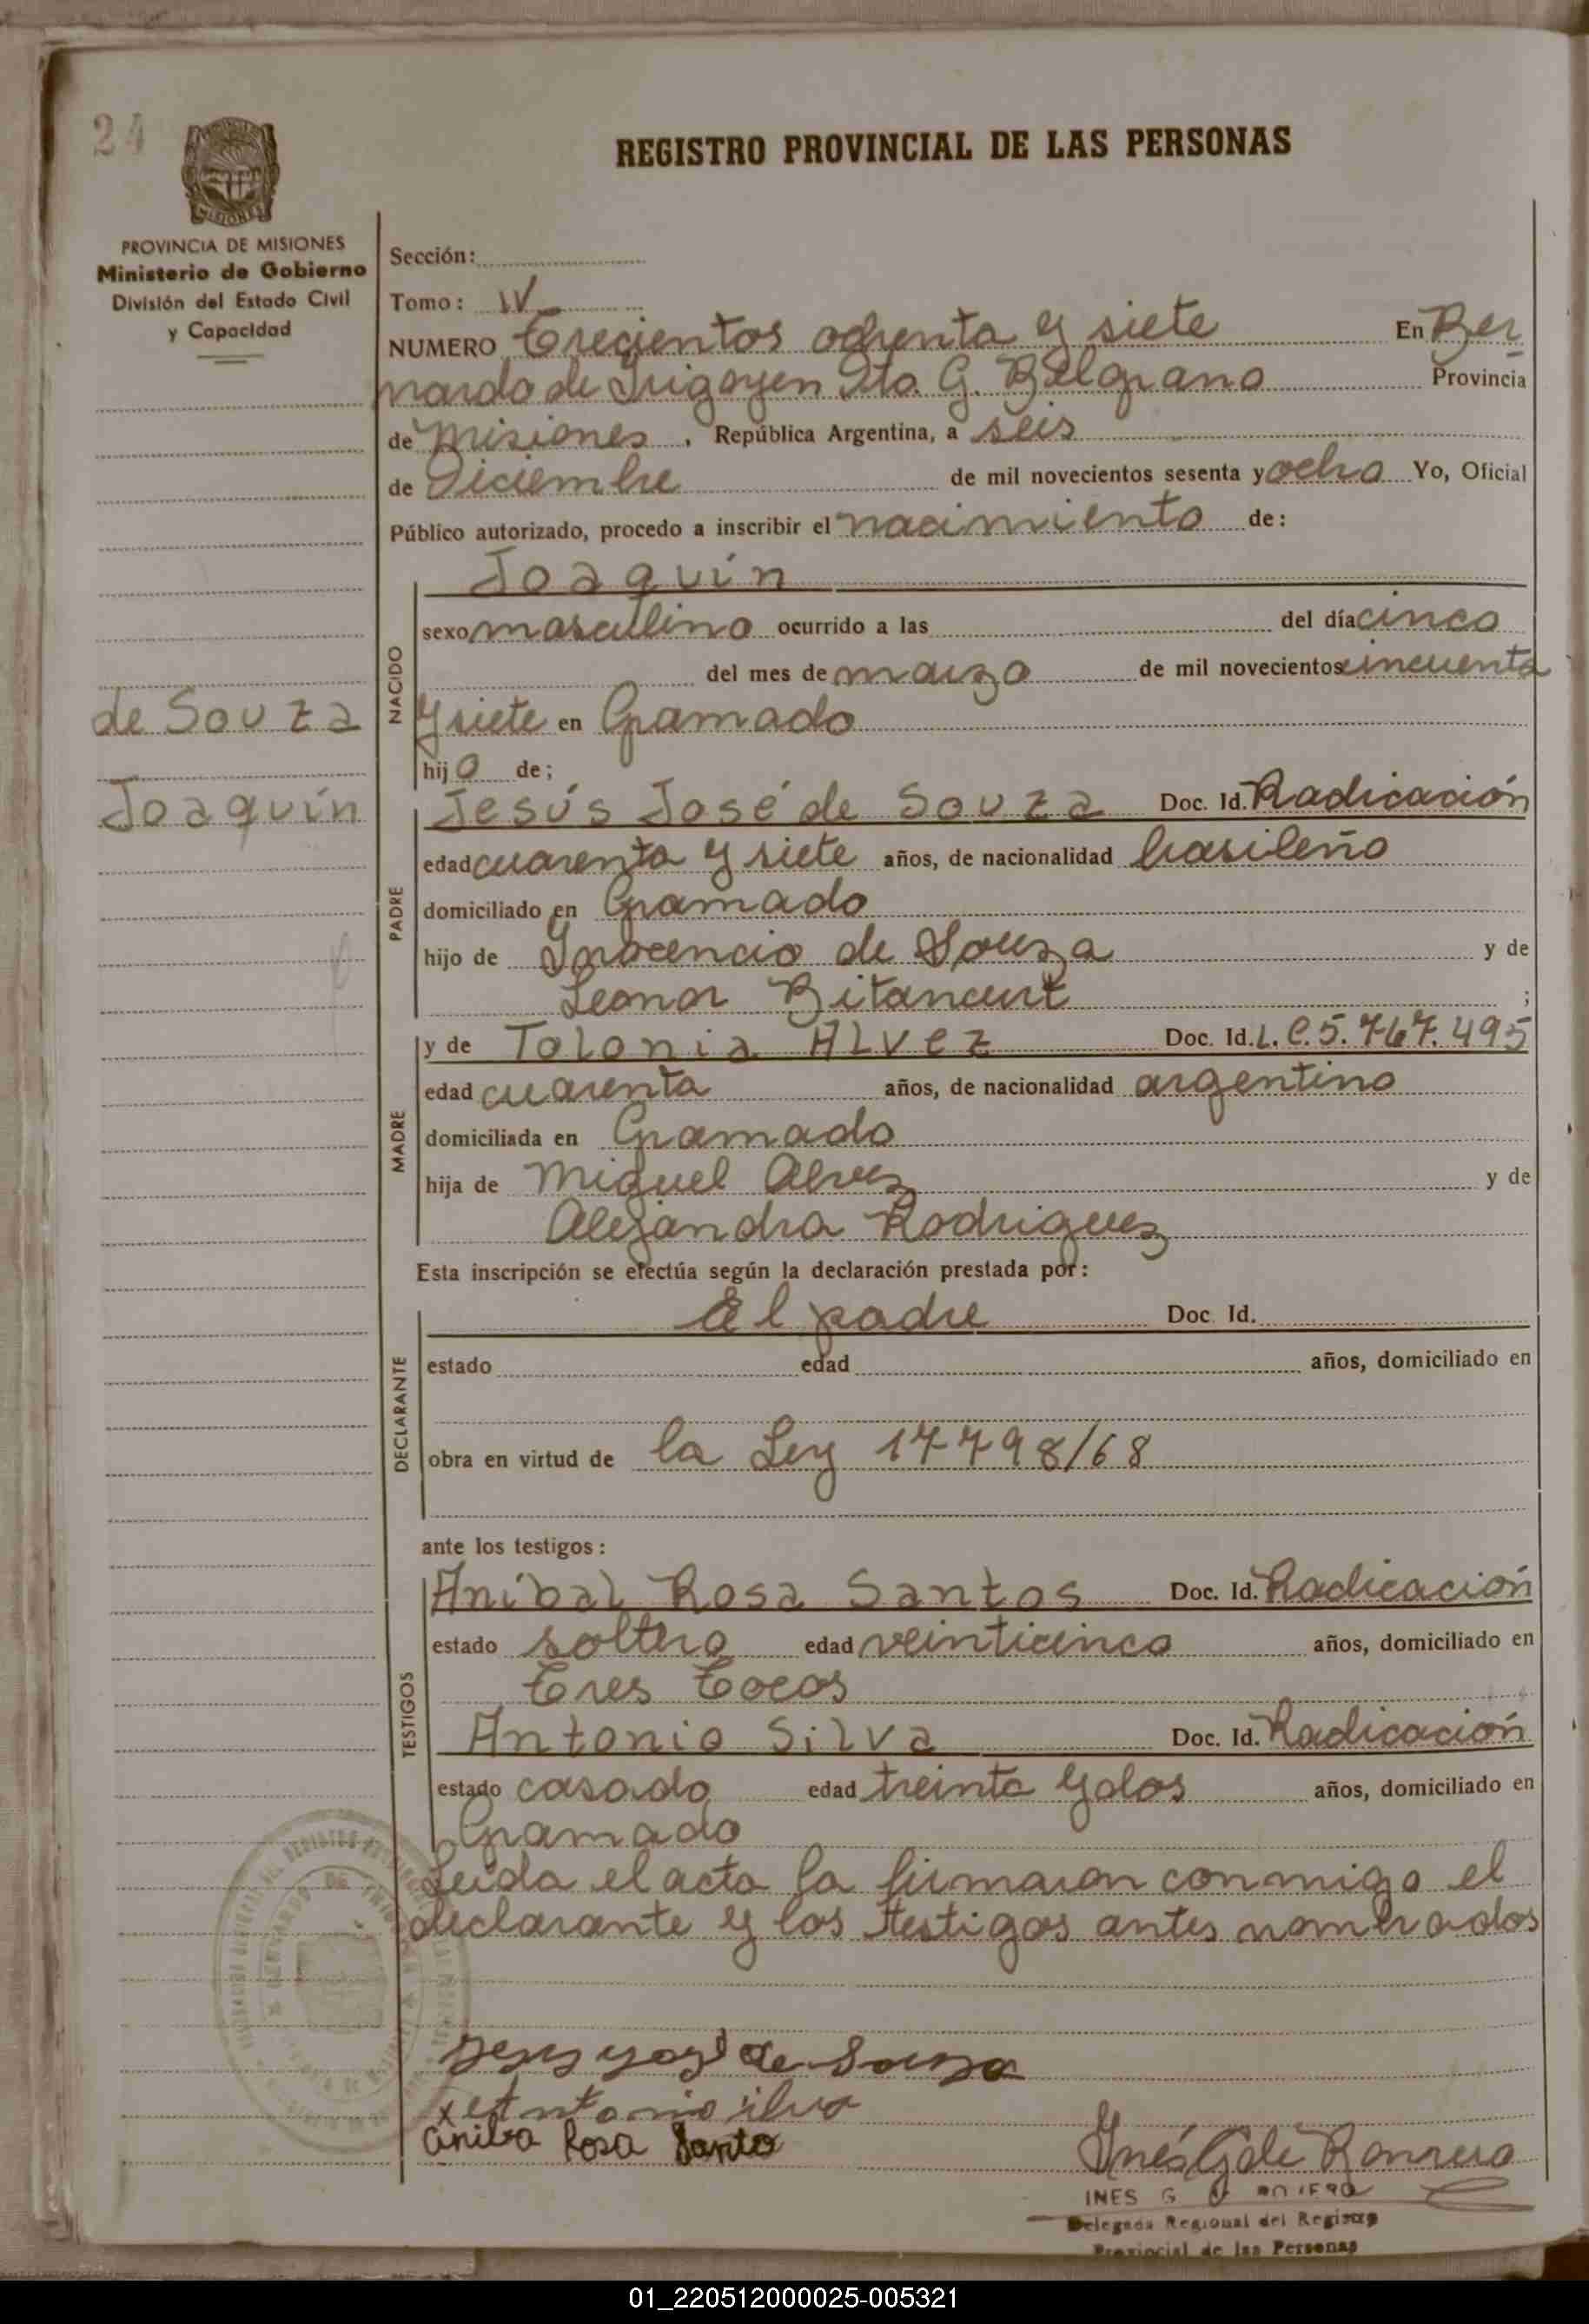 24
REGISTRO PROVINCIAL DE LAS PERSONAS
MISIONES
PROVINCIA DE MISIONES
Ministerio de Gobierno
División del Estado Civil
y Capacidad
de Souza
Joaquín
Sección:
Tomo: IV
NUMERO Trecientos ochenta y siete En Ber
nardo de Irigoyen Dto. G. Belgrano Provincia
de Misiones, República Argentina, a seis
de Diciembre de mil novecientos sesenta y ocho Yo, Oficial
Público autorizado, procedo a inscribir el nacimiento de:
Joaquín
NACIDO
sexo masculino ocurrido a las del día cinco
del mes de marzo de mil novecientos cincuenta
y siete en Gramado
hijo de;
PADRE
Jesús José de Souza Doc. Id. Radicación
edad cuarenta y siete años, de nacionalidad brasileño
domiciliado en Gramado
hijo de Inocencio de Souza y de
Leonor Bitancurt ;
MADRE
y de Tolonia Alvez Doc. Id. L.C.5.767.495
edad cuarenta años, de nacionalidad argentino
domiciliada en Gramado
hija de Miguel Alvez y de
Alejandra Rodriguez
Esta inscripción se efectúa según la declaración prestada por:
DECLARANTE
El padre Doc. Id.
estado edad años, domiciliado en
obra en virtud de la Ley 17798/68
ante los testigos:
TESTIGOS
Aníbal Rosa Santos Doc. Id. Radicación
estado soltero edad veinticinco años, domiciliado en
Tres Tocos
Antonio Silva Doc. Id. Radicación
estado casado edad treinta y dos años, domiciliado en
Gramado
Leída el acta la firmaron conmigo el
declarante y los testigos antes nombrados
Jesus José de Souza
x Antonio silva
Aniba Rosa Santo
Inés G de Romero
INES G
Delegada Regional del Registro
Provincial de las Personas
01_220512000025-005321